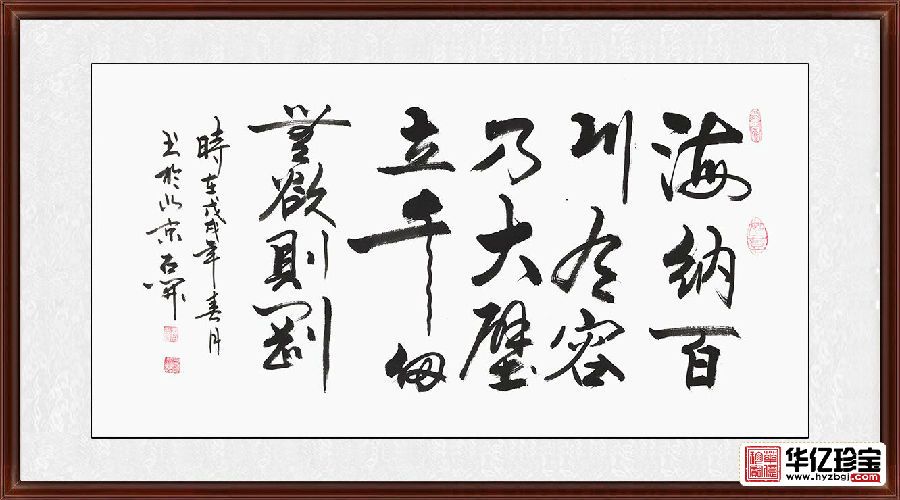 海納百
川有容
乃大壁
立千仞
無欲則剛
時在戊戌年春月
书於北京石開
华亿珍宝
www.hyzbgj.com